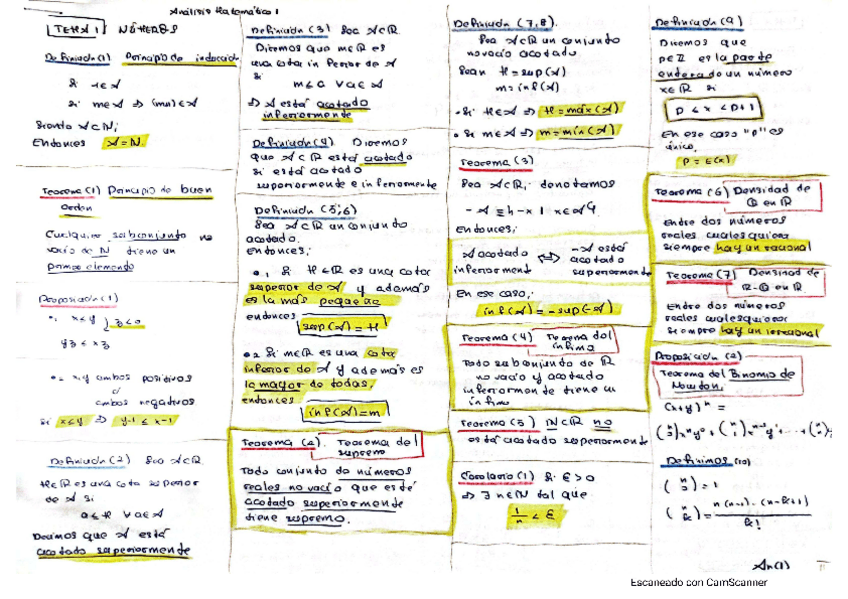 Análisis Matemático 1
TEMA 1 NÚMEROS
Definición (1) Principio de inducción
Si 1∈A
Si m∈A ⇒ (m+1)∈A
Siendo A⊂N;
Entonces A=N.
Teorema (1) Principio de buen
orden
Cualquier subconjunto no
vacío de N tiene un
primer elemento
Proposición (1)
x≤y } z<0
yz ≤ xz
x,y ambos positivos
o
ambos negativos
Si x≤y ⇒ y-1 ≤ x-1
Definición (2) Sea A⊂R
M∈R es una cota superior
de A si
a≤M ∀a∈A
Decimos que A está
acotado superiormente
Definición (3) Sea A⊂R
Diremos que m∈R es
una cota inferior de A
si
m≤a ∀a∈A
⇒ A está acotado
inferiormente
Definición (4) Diremos
que A⊂R está acotado
si está acotado
superiormente e inferiormente
Definición (5,6)
Sea A⊂R un conjunto
acotado.
Entonces,
1 Si M∈R es una cota
superior de A y además
es la más pequeña
entonces
sup(A)=M
2 Si m∈R es una cota
inferior de A y además es
la mayor de todas,
entonces
inf(A)=m
Teorema (2). Teorema del
supremo
Todo conjunto de números
reales no vacío que esté
acotado superiormente
tiene supremo.
Definición (7,8).
Sea A⊂R un conjunto
no vacío acotado
Sean M=sup(A)
m=inf(A)
Si M∈A ⇒ M=máx(A)
Si m∈A ⇒ m=mín(A)
Teorema (3)
Sea A⊂R; denotamos
-A = {-x | x∈A}.
Entonces;
A acotado ⇔ -A está
inferiorment acotado
superiormente
En ese caso,
inf(A)=-sup(-A)
Teorema (4) Teorema del
ínfimo
Todo subconjunto de R
no vacío y acotado
inferiormente tiene un
ínfimo
Teorema (5) N⊂R no
está acotado superiormente
Corolario (1) Si ε>0
⇒ ∃ n∈N tal que
1/n < ε
Definición (9)
Diremos que
p∈Z es la parte
entera de un número
x∈R si
p ≤ x < p+1
En ese caso "p" es
único,
p = E(x)
Teorema (6) Densidad de
Q en R
Entre dos números
reales cualesquiera
siempre hay un racional
Teorema (7) Densidad de
R-Q en R
Entre dos números
reales cualesquiera
siempre hay un irracional
Proposición (2)
Teorema del Binomio de
Newton.
(x+y)^n =
Definimos (10)
(n 0) = 1
(n k) = n(n-1)...(n-k+1)
k!
An(1)
Escaneado con CamScanner